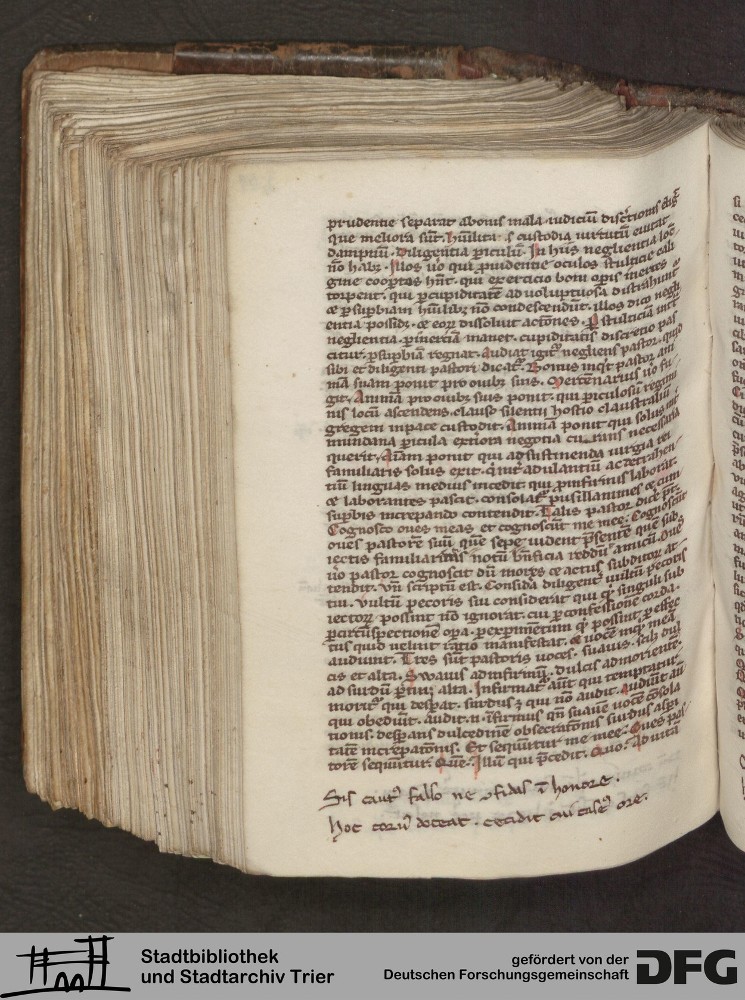 prudentie separat abonis mala. iudiciũ discr̃tionis
que meliora sũt. hũilitas custodia uirtutũ euitat
dampnũ. diligentia ꝑiculũ. In hiis neglientia locũ
nõ habꝫ. Illos ũo qui prudentie oculos stulticie cali
gine cooptos hñt. qui exercicio boni opis inertes
torpent. qui ꝑcupiditatẽ ad uoluptuosa distrahunt᷑
⁊ ꝑ suꝑbiam hũilibꝫ nõ condescendũt. illos dico negli
entia possidꝫ. ⁊ eorꝝ dissoluit actiones. ꝑ stulticiã
neglientia. ꝑinerciã manet. cupiditatis discretio pas
citur. ꝑsuꝑbiã regnat. Audiat igit᷑ negliens pastor. quid
sibi et diligenti pastori dicat᷑. Bonus inqͥt pastor ani
mã suam ponit pro ouibꝫ suis. Mercenarius ũo fu
git. Animã pro ouibꝫ suis ponit. qui ꝑiculosũ regimi
nis locũ ascendens. clauso silentii hostio claustraliũ
gregem inpace custodit. Animã ponit qui solus int᷑
mundana ꝑicula exteriora negotia necessaria
querit. Aĩam ponit qui ad sustinenda iurgia rei
familiaris solus exit. adulantiũ ac detrahen
tiũ linguas medius incedit. qui ꝓ infirmis laborat.
⁊ laborantes pascit. consolat᷑ pusillanimes ⁊ cum
suꝑbis increpando contendit. Talis pastor dicẽ pt̃.
Cognosco oues meas et cognoscũt me mee. Cognoscũt
oues pastorẽ suũ. quẽ sepe uident p̃sentẽ que sub
iectis familiaritas notũ bñficia reddũt amicũ. Oues
ũo pastor cognoscit dũ mores ⁊ actus subditorꝝ at
tendit. Vñ scriptũ est. Considã diligent᷑ uultũ pecoris
tui. Vultũ pecoris sui considerat qui singuli sub
iectorꝝ possint nõ ignorat. cui ꝑ confessionẽ corda.
ꝑ circũspectionẽ oꝑa. ꝑ exꝑimentum possint. ꝑ effec
tus quid uelint ratio manifestat. ⁊ uocẽ inqͥt meã
audiunt. Tres sũt pastoris uoces. suauis. scilꝫ dul
cis et alta. Swauis ad infirmũ. dulcis ad morientẽ.
ad surdũ ꝑtinꝫ alta. Infirmat᷑ aũt qui temptatur
morit᷑ qui desperat. surdus ẽ qui nõ audit. Audiũt aũ
qui obediũt. audit. n. ĩfirmus qñ suauẽ uocẽ cõsola
tionis. desꝑans dulcedinẽ obsecrationis surdus asꝑi
tatẽ increpationis. Et sequũtur me mee. Oues pas
torẽ sequũtur. Quẽ. Illũ qui p̃cedit. Quo. Ad uitã
Sis caut᷑ fallo ne ꝯfidas ĩ honore.
Hoc coruũ doceat. cecidit cui caseꝰ ore.
Stadtbibliothek
und Stadtarchiv Trier
gefördert von der
Deutschen Forschungsgemeinschaft
DFG